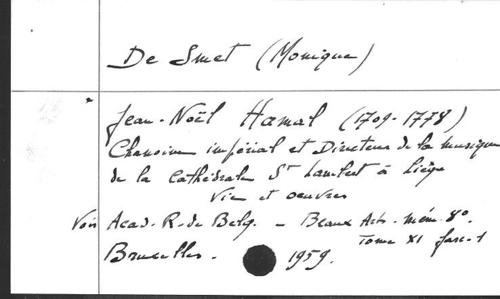 De Smet (Monique)
Jean-Noël Hamal (1709-1778)
Chanoine impérial et Directeur de la musique
de la Cathédrale St Lambert à Liège
Vie et oeuvres
Voir Acad. R. de Belg. - Beaux Arts - mém. 8º
Tome XI fasc. 1
Bruxelles - 1959.